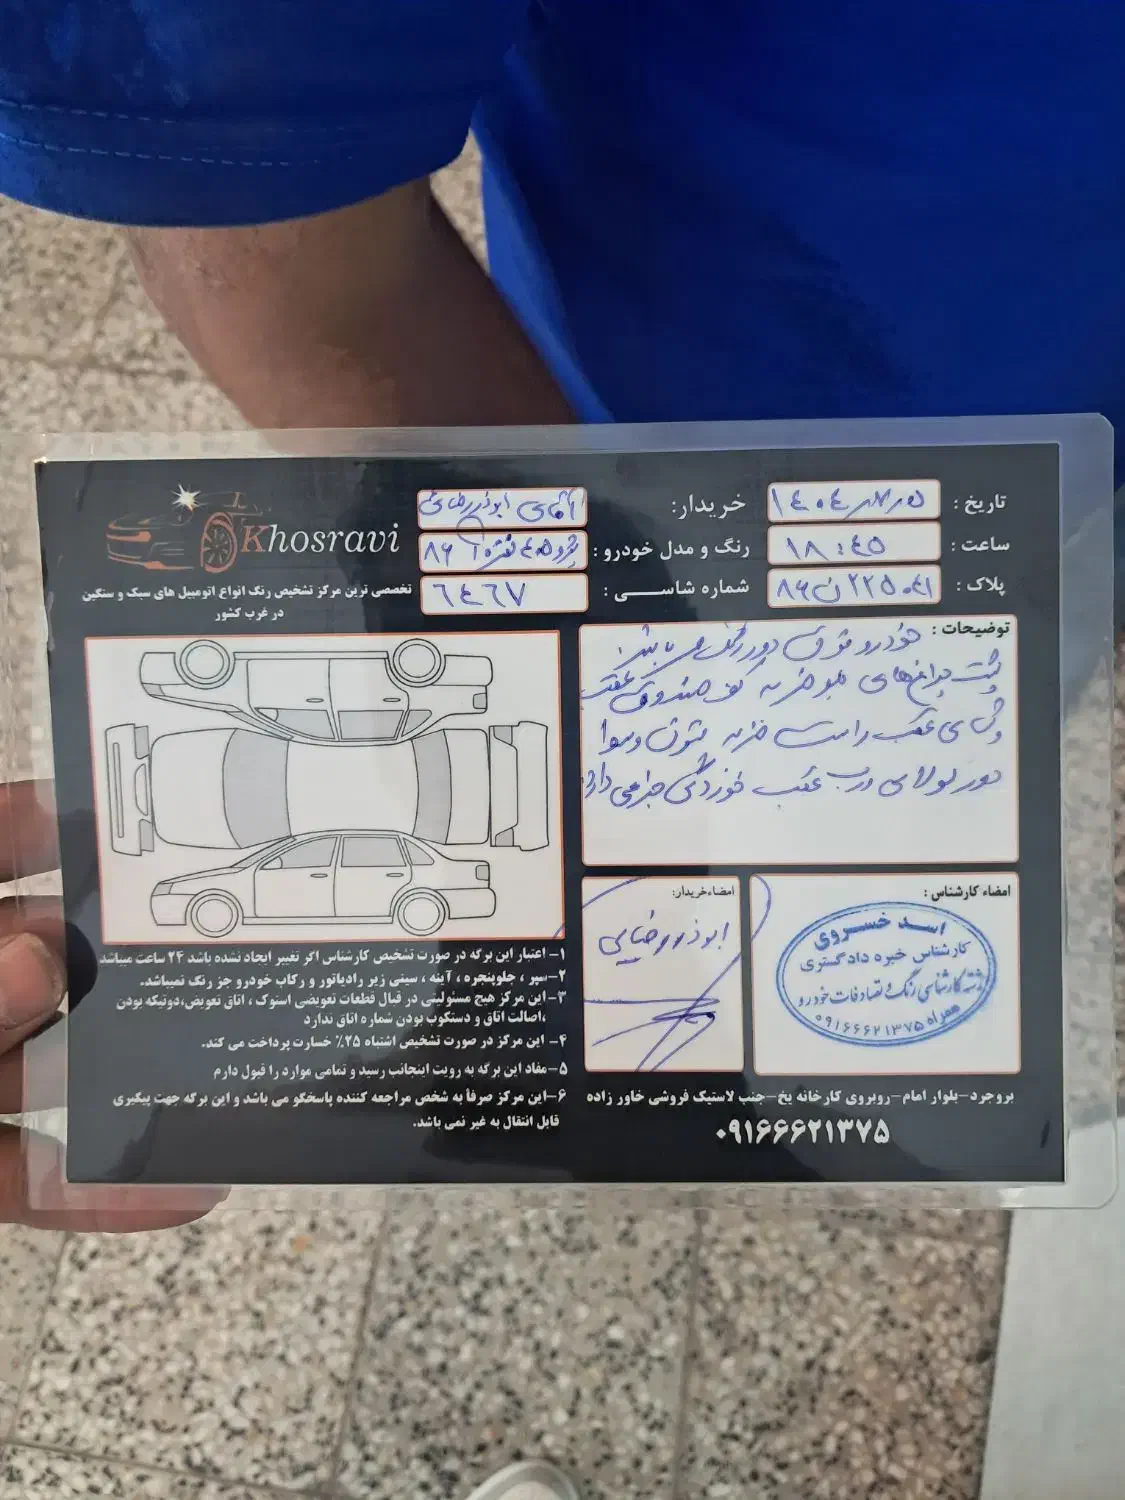 Khosravi
تخصصی ترین مرکز تشخیص رنگ انواع اتومبیل های سبک و سنگین
در غرب کشور
تاریخ :
خریدار: آقای ابوذر رضائی
ساعت : ۱۸:۴۵
رنگ و مدل خودرو : پژو ۴۰۵ نقره ۸۶
پلاک :
شماره شاسی : ٦٤٦٧
توضیحات : خودرو فوق دور رنگ می باشد
پشت چراغ‌های جلو ضربه کف صندوق عقب
عقب راست ضربه ستون
دور لولای درب عقب خوردگی جزئی دارد
امضاء کارشناس :
اسد خسروی
کارشناس خبره دادگستری
رشته کارشناسی رنگ و تصادفات خودرو
همراه ۰۹۱۶۶۶۲۱۳۷۵
امضاءخریدار:
ابوذر رضایی
۱- اعتبار این برگه در صورت تشخیص کارشناس اگر تغییر ایجاد نشده باشد ۲۴ ساعت میباشد
۲-سپر ، جلوپنجره ، آینه ، سینی زیر رادیاتور و رکاب خودرو جز رنگ نمیباشد.
۳-این مرکز هیچ مسئولیتی در قبال قطعات تعویضی استوک ، اتاق تعویض،دوتیکه بودن
،اصالت اتاق و دستکوب بودن شماره اتاق ندارد
۴- این مرکز در صورت تشخیص اشتباه ۲۵٪ خسارت پرداخت می کند.
۵-مفاد این برگه به رویت اینجانب رسید و تمامی موارد را قبول دارم
۶-این مرکز صرفأ به شخص مراجعه کننده پاسخگو می باشد و این برگه جهت پیگیری
قابل انتقال به غیر نمی باشد.
بروجرد-بلوار امام-روبروی کارخانه یخ-جنب لاستیک فروشی خاور زاده
۰۹۱۶۶۶۲۱۳۷۵